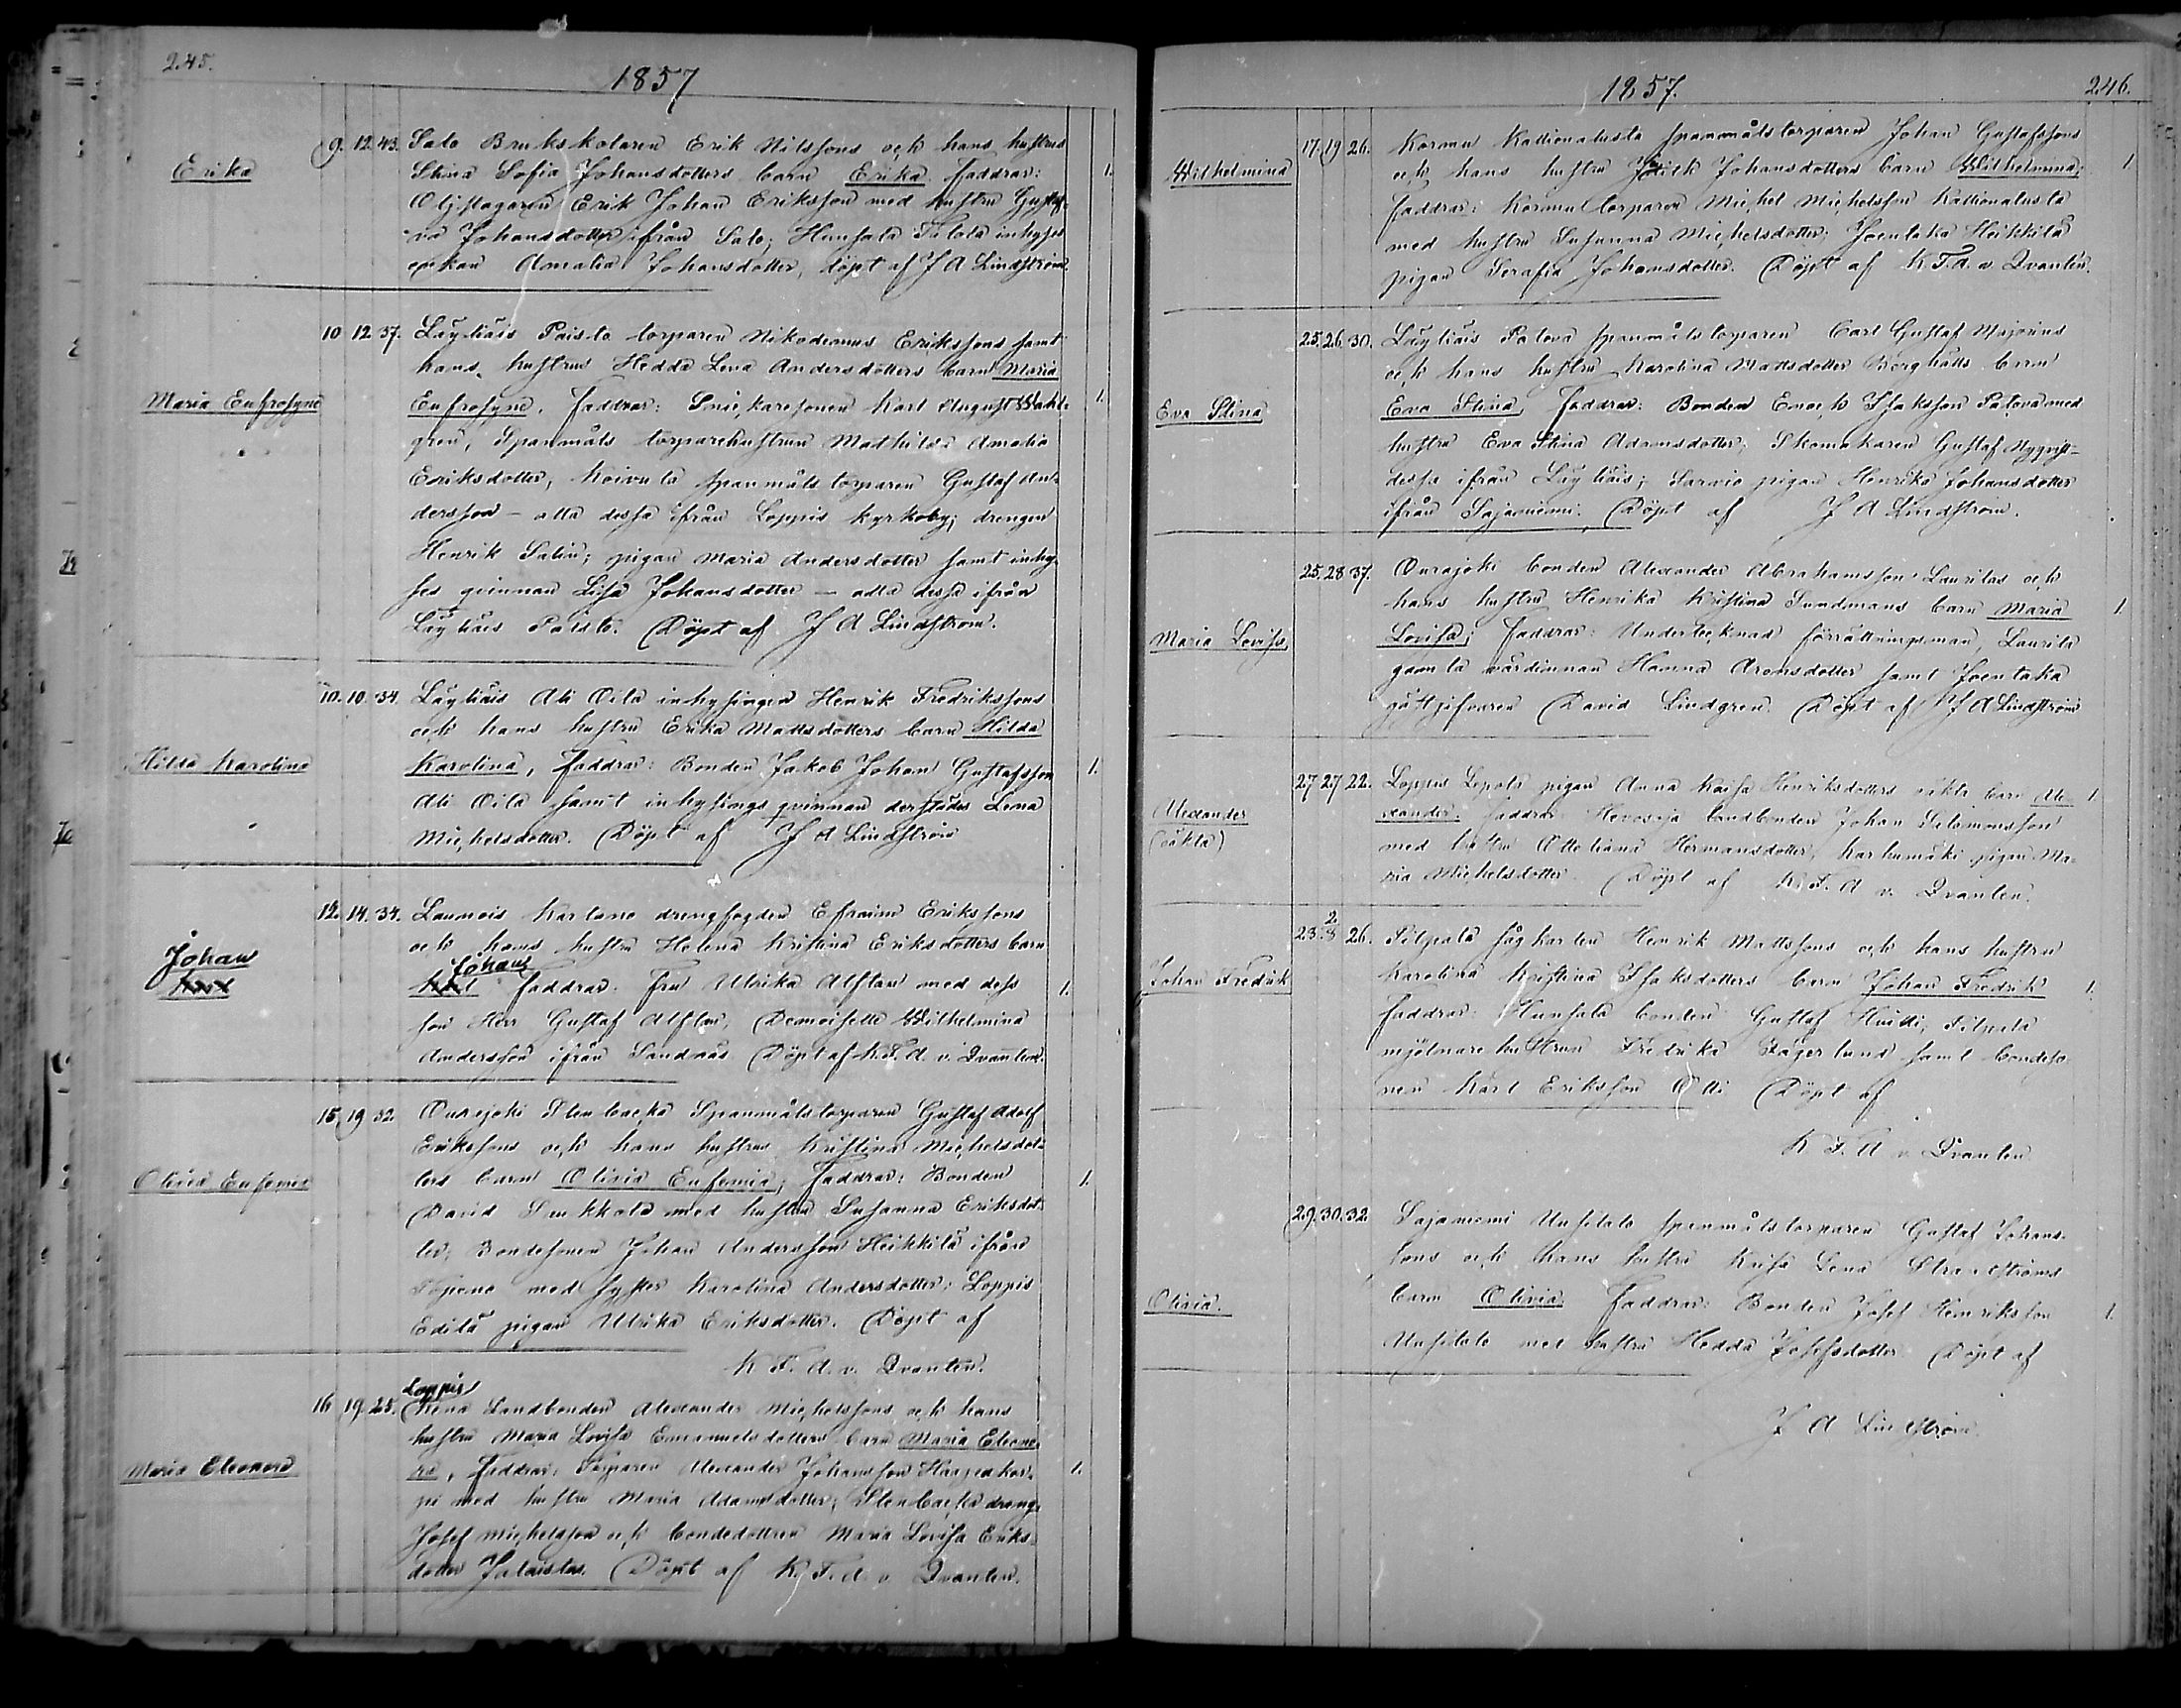 245.
1857
Erika
9. 12. 43. Salo Brukskolaren Erik Nilssons och hans hustrus
Stina Sofia Johansdotters barn Erika. Faddrar:
Oljslagaren Erik Johan Eriksson med hustru Gustaf-
va Johansdotter ifrån Salo; Hunsala Talola inhyses
enkan Amalia Johansdotter, döpt af J A Lindström.
Maria Eufrosyne
10 12 37. Läyliäis Paisto torparen Nikodemus Erikssons samt
hans hustrus Hedda Lena Andersdotters barn Maria
Eufrosyne. Faddrar: Snickaresonen Karl August Wahl-
gren, Spanmåls torparehustrun Mathilda Amalia
Eriksdotter, Koivula spanmåls torparen Gustaf An-
dersson – alla dessa ifrån Loppis kyrkoby; drengen
Henrik Salin; pigan Maria Andersdotter samt inhy-
ses qvinnan Lisa Johansdotter – alla dessa ifrån
Läyliäis Paisto. Döpt af J A Lindström.
Hilda Karolina
10. 10. 34. Läyliäis Ali Oila inhysingen Henrik Fredrikssons
och hans hustru Erika Mattsdotters barn Hilda
Karolina, Faddrar: Bonden Jakob Johan Gustafsson
Ali Oila samt inhysings qvinnan derstädes Lena
Michelsdotter. Döpt af J A Lindström
Johan
Karl
12. 14. 34. Launois Kartano drengfogden Efraim Erikssons
och hans hustru Helena Kristina Eriksdotters barn
Johan
Karl Faddrar. Fru Ulrika Alftan med dess
son Herr Gustaf Alftan, Demoiselle Wilhelmina
Andersson ifrån Sandnäs Döpt af K. F. A. v. Qvanten.
Olivia Eufemia
15. 19 32. Ourajoki Stenbacka Spanmålstorparen Gustaf Adolf
Erikssons och hans hustrus Kristina Michelsdot-
ters barn Olivia Eufemia; Faddrar: Bonden
David Sukkola med hustru Susanna Eriksdot-
ter; Bondesonen Johan Andersson Heikkilä ifrån
Topeno med syster Karolina Andersdotter; Loppis
Edilä pigan Ulrika Eriksdotter. Döpt af
K F. A. v. Qvanten.
Maria Eleonora
Loppis
16 19. 25. Landbonden Alexander Michelssons och hans
hustru Maria Lovisa Emanuelsdotters barn Maria Eleono-
ra, Faddrar: Torparen Alexander Johansson Haapakor-
pi med hustru Maria Adamsdotter; Stenbacka dreng.
Josef Michelsson och bondedottren Maria Lovisa Eriks-
dotter Jalaistus. Döpt af K. F. A. v. Qvanten.
1857.
246.
Wilhelmina
17. 19 26. Kormu Kallionalusta spanmåls torparen Johan Gustafssons
och hans hustru Judith Johansdotters barn Wilhelmina;
Faddrar: Kormu torparen Michel Michelsson Kallionalusta
med hustru Susanna Michelsdotter; Joentaka Heikkilä
pigan Serafia Johansdotter. Döpt af K. F. A. v. Qvanten.
Eva Stina
25. 26. 30. Läyliäis Patova spanmåls torparen Carl Gustaf Majorins
och hans hustru Karolina Mattsdotter Berghälls barn
Eva Stina, Faddrar: Bonden Enoch Isaksson Patova med
hustru Eva Stina Adamsdotter; Skomakaren Gustaf Nyqvist –
dessa ifrån Läyliäis; Sarvio pigan Henrika Johansdotter
ifrån Sajaniemi. Döpt af J A Lindström.
Maria Lovisa
25. 28 37. Ourajoki bonden Alexander Abrahamsson Laurilas och
hans hustru Henrika Kristina Sundmans barn Maria
Lovisa; Faddrar: Undertecknad förrättningsman, Laurila
gamla värdinnan Hanna Aronsdotter samt Joentaka
gästgifvaren David Lindgren. Döpt af J A Lindström
Alexander
(oäkta)
27 27 22. Loppis Lepola pigan Anna Kaisa Henriksdotters oäkta barn Ale-
xander. Faddrar: Hevosoja landbonden Johan Salomonsson
med hustru Ottoliana Hermansdotter, Karhumäki pigan Ma-
ria Michelsdotter. Döpt af K. F. A v. Qvanten.
Johan Fredrik
2.
23. 3 26. Pilpala sågkarlen Henrik Mattssons och hans hustrus
Karolina Kristina Isaksdotters barn Johan Fredrik
Faddrar: Hunsala bonden Gustaf Huitti, Pilpala
mjölnare hustrun Fredrika Fagerlund samt bondeso-
nen Karl Eriksson Ali Döpt af
K F. A v. Qvanten
Olivia.
29. 30. 32. Sajaniemi Uusitalo spanmåls torparen Gustaf Johans-
sons och hans hustru Kaisa Lena Strandströms
barn Olivia. Faddrar: Bonden Josef Henriksson
Uusitalo med hustru Hedda Josefsdotter. Döpt af
J A Lindström.